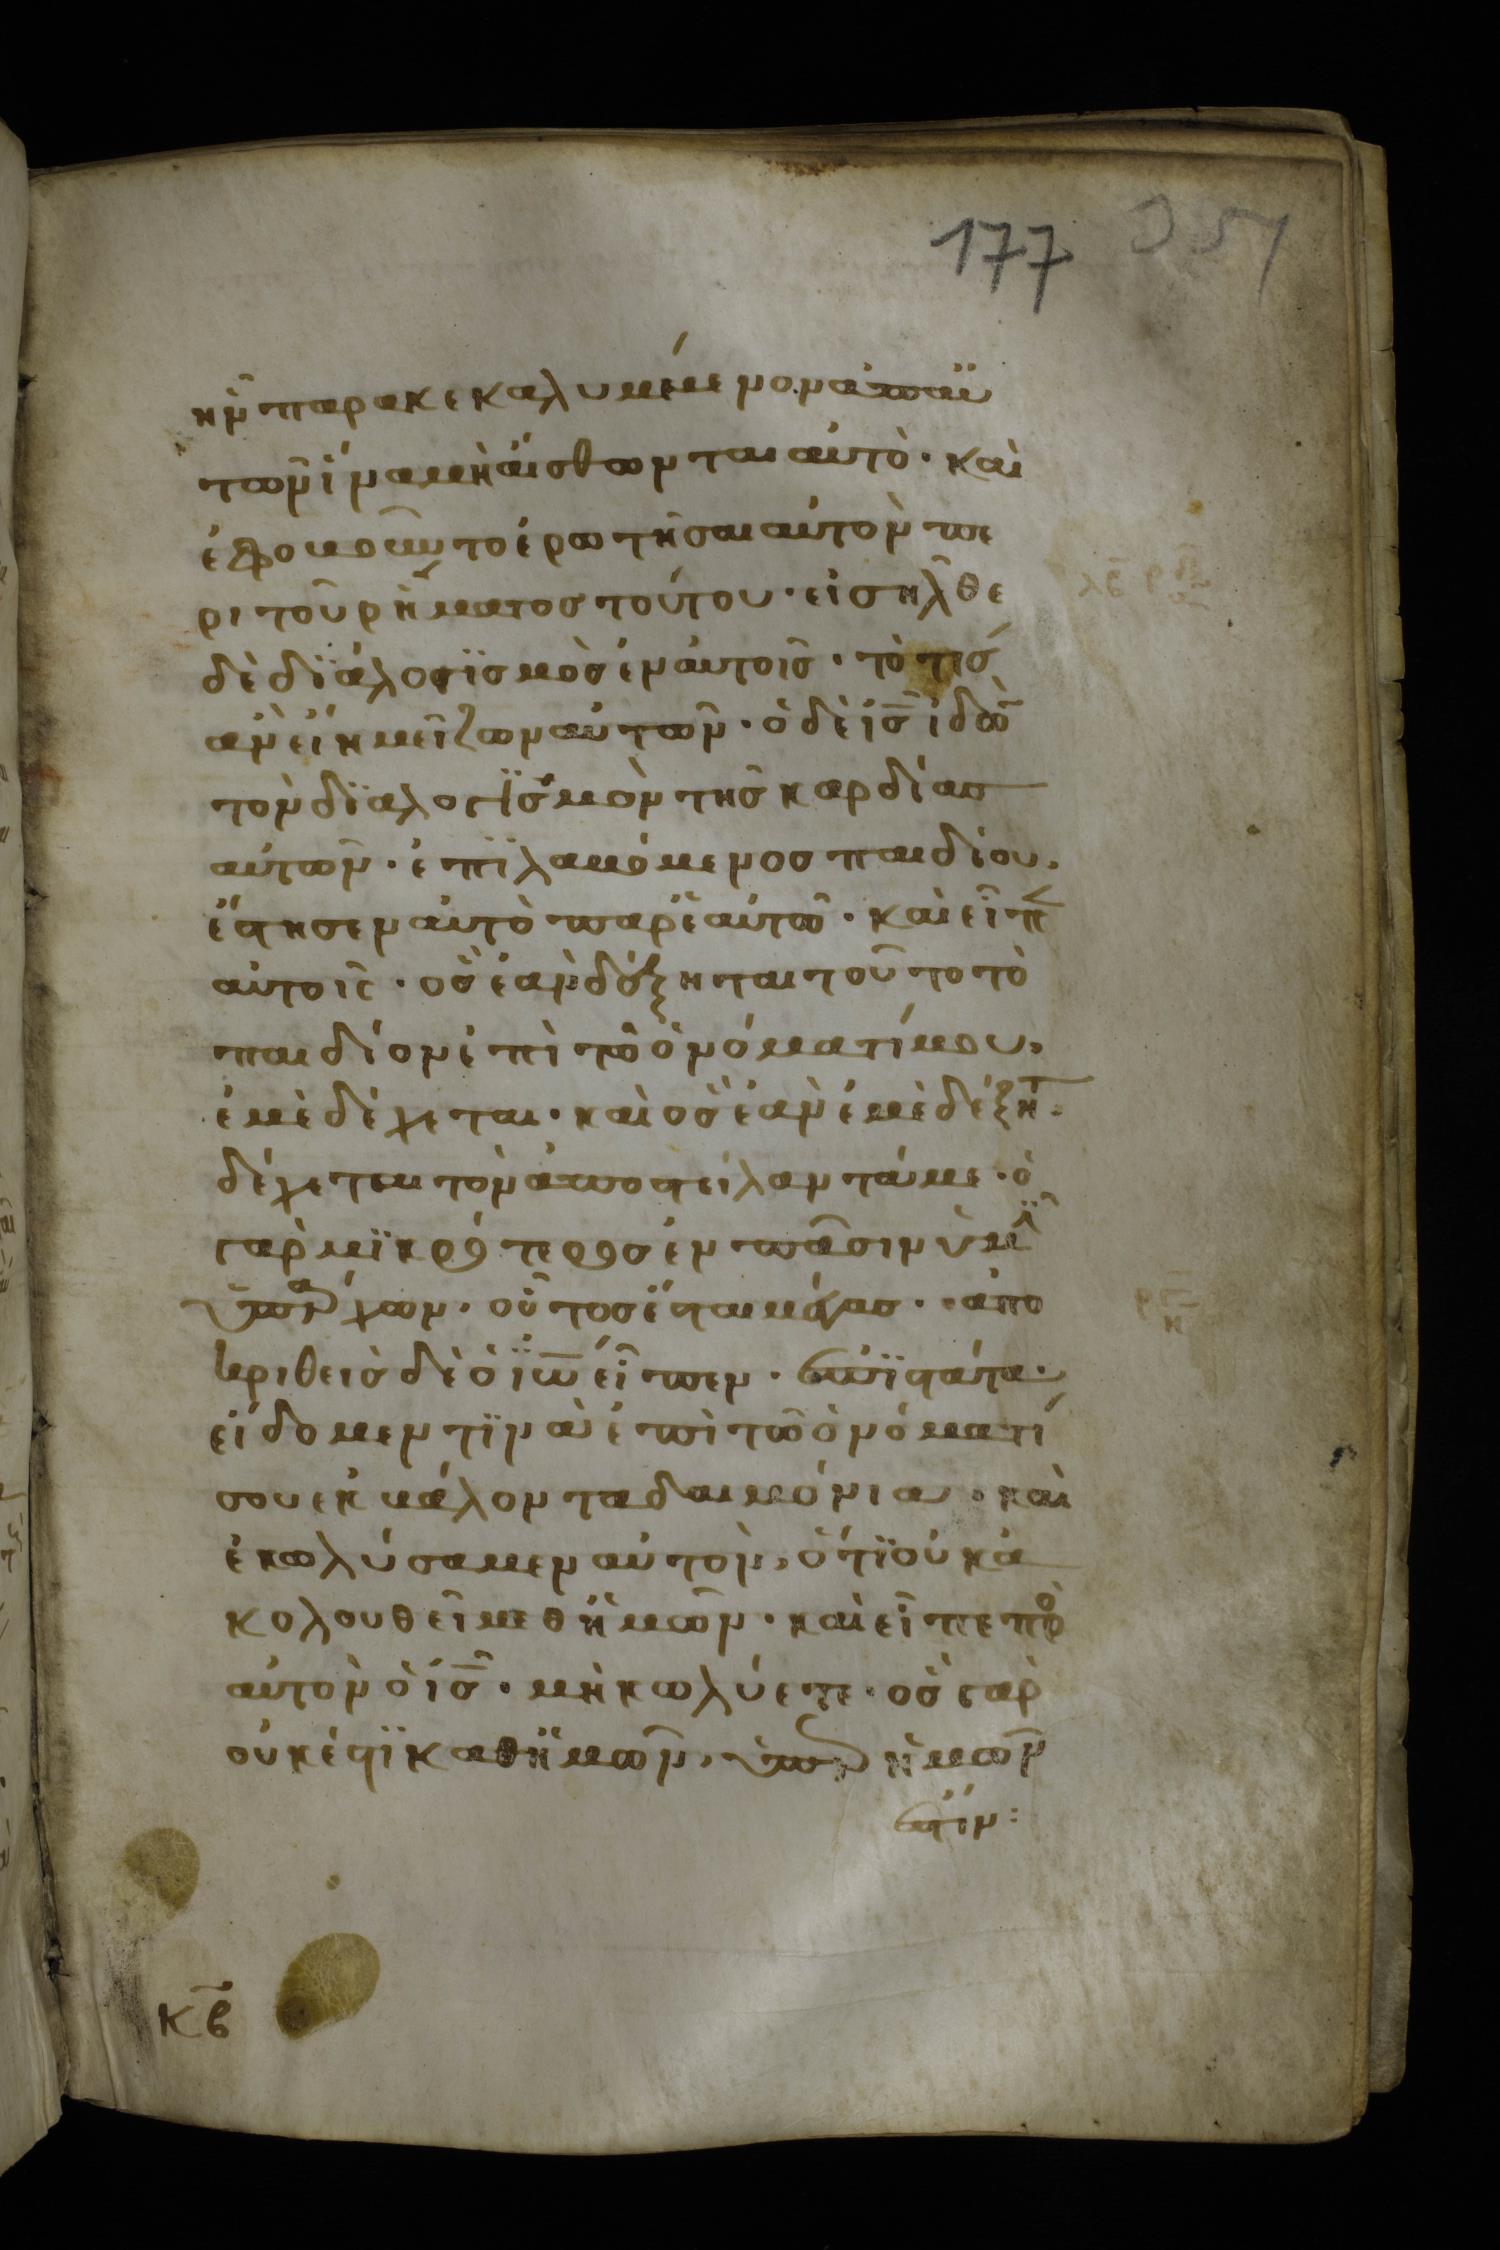 177
351
ἠν̂ παρακεκαλυμέμενον ἀπ αὐ
τῶν ἵνα μὴ ἄισθωνται αὐτό · καὶ
ἐφοβοῦντο ἐρωτῆσαι αὐτὸν πε
ρι τοῦ ρήματος τούτου · εἰσῆλθε
δὲ διάλογϊσμὸς ἐν αὐτοῖς · τὸ τίς
ἀν εἴη μείζων αὐτῶν · ὁ δὲ ι̅ς̅ ἰδὼ
τὸν δϊαλογϊσμὸν τῆς καρδίας
αὐτῶν · ἐπϊλαβόμενος παιδίου,
ἔστησεν αὐτὸ παρ' ἑαυτῶ · καὶ εἶπ
αὐτοῖς · ὃς ἐὰν δέξηται τοῦτο τὸ
παιδίον ἐπὶ τῶ ὀνόματί μου,
ἐμὲ δέχεται · καὶ ὃς ἐὰν ἐμὲ δέξητ ·
δέχεται τὸν ἀποστείλαντά με · ὁ
γὰρ μϊκρότερος ἐν πᾶσιν ὑμῖ
ὑπάρχων · οὗτος ἔσται μέγας · ἀπο
κριθεὶς δὲ ὁ ἰω̅ εἶπεν · ἐπϊστάτα ·
εἴδομεν τϊνὰ ἐπὶ τῶ ὀνόματί
σου ἐκβάλοντα δαιμόνια · καὶ
ἐκωλύσαμεν αὐτόν, ὅτϊ οὐκ ἀ
κολουθεῖ μεθ ἡμῶν · καὶ εἶπε προ
αὐτὸν ὁ ι̅ς̅ · μὴ κωλύετε · ὃς γὰρ
οὐκ ἔστϊ καθ ἡμῶν, ὑπὲρ ἡμῶν
ἐστίν :
κ̅β̅